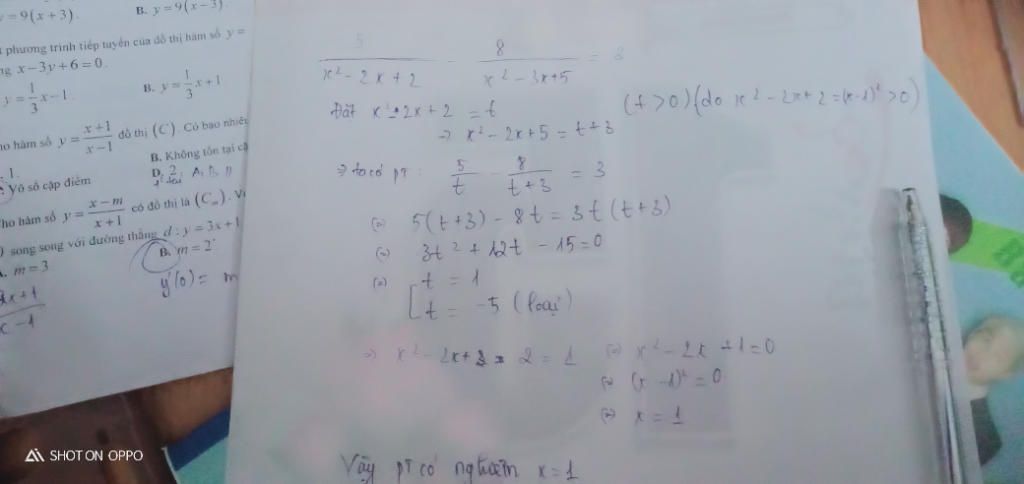 y = 9(x+3).
B. y = 9(x-3).
t phương trình tiếp tuyến của đồ thị hàm số y =
ng x-3y+6=0.
y = 1/3 x - 1.
B. y = 1/3 x + 1
ho hàm số y = (x+1)/(x-1) đồ thị (C). Có bao nhiêu
. 1.
B. Không tồn tại cặ
Vô số cặp điểm
D. 2
ho hàm số y = (x-m)/(x+1) có đồ thị là (Cm).
) song song với đường thẳng d: y = 3x+1
. m = 3
B. m = 2
y'(0) = m
2x+1
x-1
5/(x²-2x+2) - 8/(x²-3x+5) = 3
Đặt x²-2x+2 = t (t>0) (do x²-2x+2=(x-1)²>0)
=> x²-2x+5 = t+3
=> ta có pt: 5/t - 8/(t+3) = 3
(=) 5(t+3) - 8t = 3t(t+3)
(=) 3t² + 12t - 15 = 0
(=) [t = 1
t = -5 (loại)
=> x²-2x+ 2 = 1 (=) x²-2x+1=0
(=) (x-1)² = 0
(=) x = 1
Vậy pt có nghiệm x=1
SHOT ON OPPO